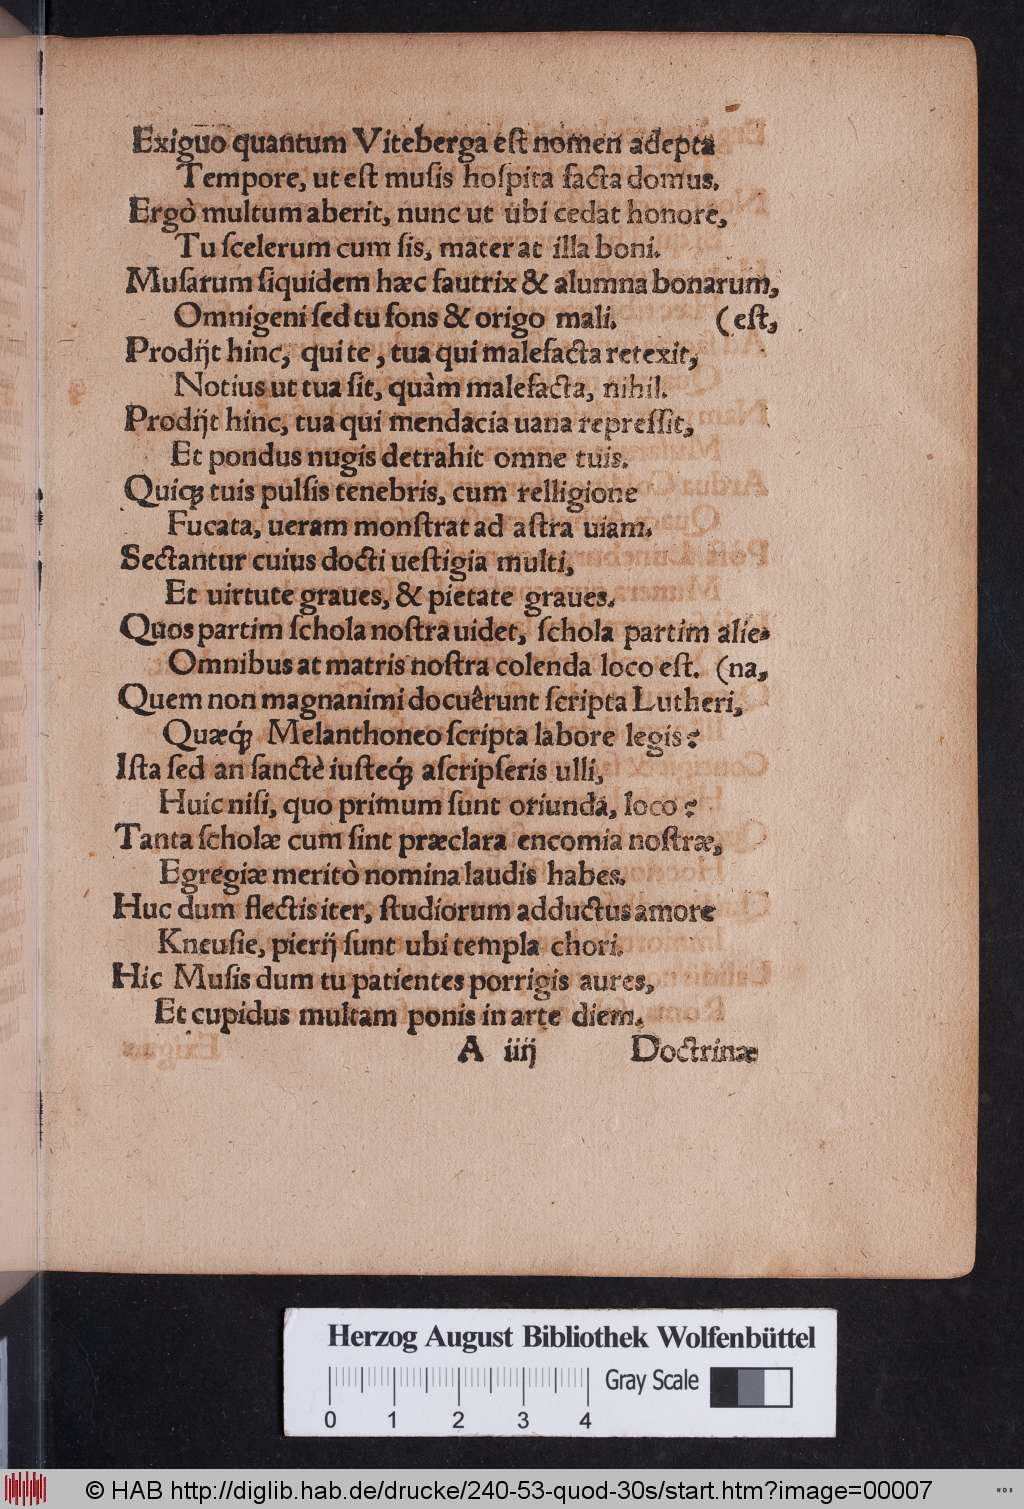 Exiguo quantum Viteberga est nomen adepta
Tempore, ut est musis hospita facta domus.
Ergò multum aberit, nunc ut ubi cedat honore,
Tu scelerum cum sis, mater at illa boni.
Musarum siquidem hæc fautrix & alumna bonarum,
Omnigeni sed tu fons & origo mali. (est,
Prodijt hinc, qui te, tua qui malefacta retexit,
Notius ut tua sit, quàm malefacta, nihil.
Prodijt hinc, tua qui mendacia uana repressit,
Et pondus nugis detrahit omne tuis.
Quiq; tuis pulsis tenebris, cum relligione
Fucata, ueram monstrat ad astra uiam.
Sectantur cuius docti uestigia multi,
Et uirtute graues, & pietate graues.
Quos partim schola nostra uidet, schola partim alie-
Omnibus at matris nostra colenda loco est. (na,
Quem non magnanimi docuêrunt scripta Lutheri,
Quæq́; Melanthoneo scripta labore legis?
Ista sed an sanctè iusteq́; ascripseris ulli,
Huic nisi, quo primum sunt oriunda, loco?
Tanta scholæ cum sint præclara encomia nostræ,
Egregiæ meritò nomina laudis habes.
Huc dum flectis iter, studiorum adductus amore
Kneusie, pierij sunt ubi templa chori.
Hic Musis dum tu patientes porrigis aures,
Et cupidus multam ponis in arte diem.
A iiij Doctrinæ
Herzog August Bibliothek Wolfenbüttel
Gray Scale
0 1 2 3 4
© HAB http://diglib.hab.de/drucke/240-53-quod-30s/start.htm?image=00007